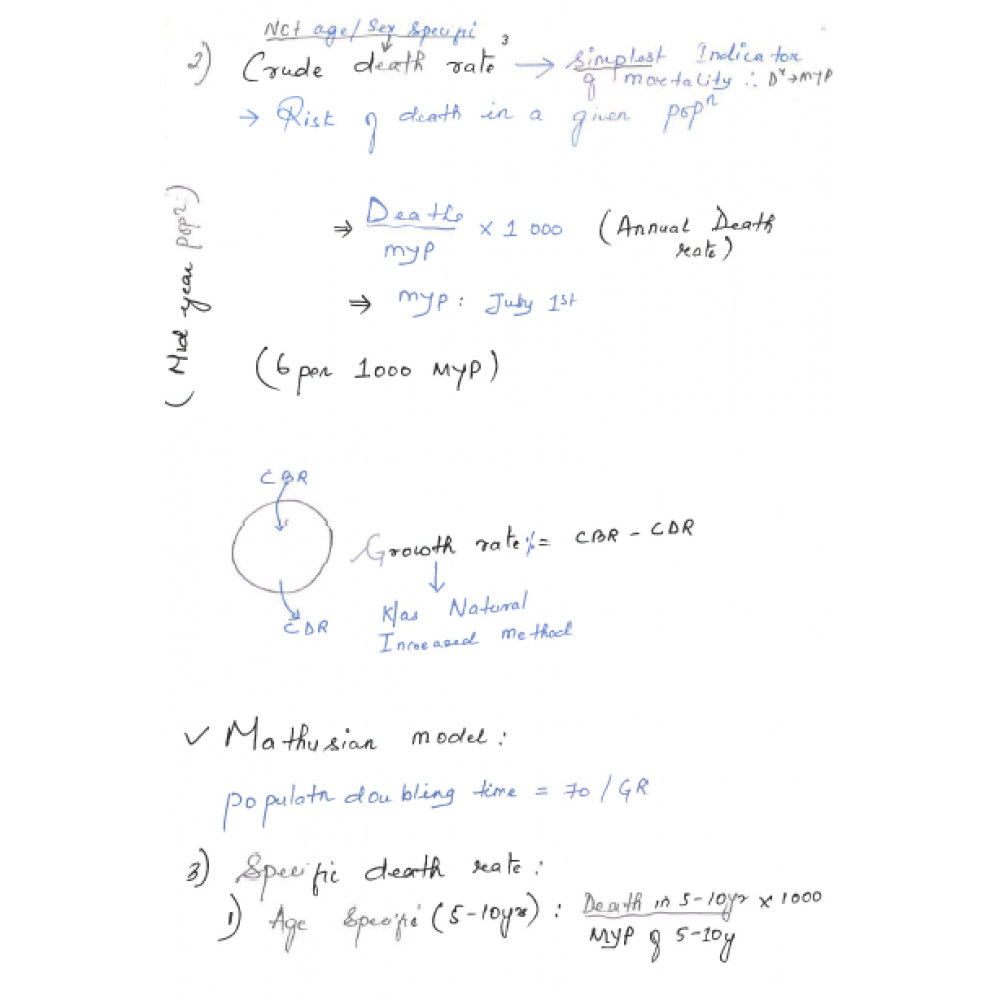 Not age/ Sex Specifi
2) Crude death rate 3 → Simplest Indicator
of mortality ∴ Dr → MYP
→ Risk of death in a given popn
(Mid year popn)
⇒ Deaths / MYP × 1000 (Annual Death rate)
⇒ MYP : July 1st
(6 per 1000 MYP)
CBR
Growth rate := CBR - CDR
CDR
K/as Natural
Increased method
✓ Mathusian model :
populatn doubling time = 70 / GR
3) Specific death rate :
1) Age Specifi (5-10yr) : Death in 5-10yr × 1000
MYP of 5-10y